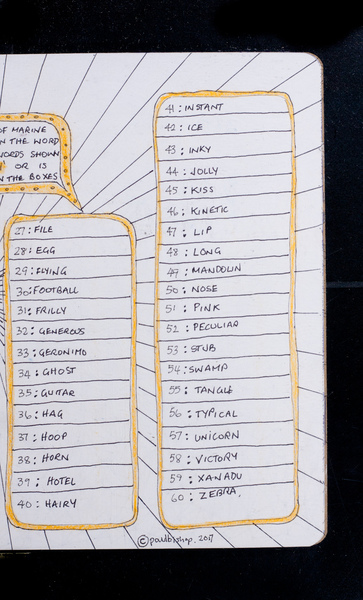 OF MARINE
N THE WORD
WORDS SHOWN
OR IS
N THE BOXES
27: FILE
28: EGG
29: FLYING
30: FOOTBALL
31: FRILLY
32: GENEROUS
33: GERONIMO
34: GHOST
35: GUITAR
36: HAG
37: HOOP
38: HORN
39: HOTEL
40: HAIRY
41: INSTANT
42: ICE
43: INKY
44: JOLLY
45: KISS
46: KINETIC
47: LIP
48: LONG
49: MANDOLIN
50: NOSE
51: PINK
52: PECULIAR
53: STUB
54: SWAMP
55: TANGLE
56: TYPICAL
57: UNICORN
58: VICTORY
59: XANADU
60: ZEBRA.
© paulbishop. 2017